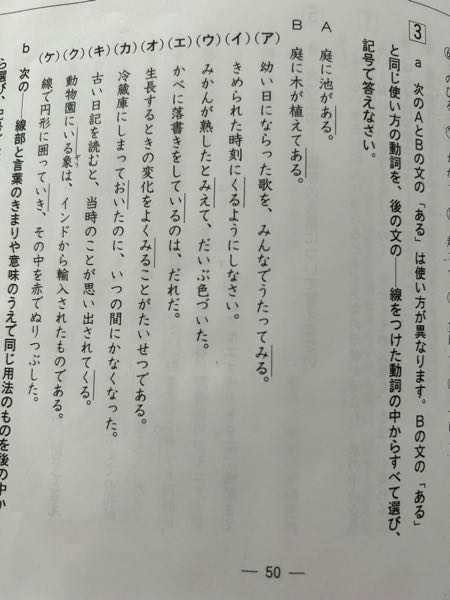 3
a 次のAとBの文の「ある」は使い方が異なります。Bの文の「ある」
と同じ使い方の動詞を、後の文の――線をつけた動詞の中からすべて選び、
記号で答えなさい。
A 庭に池がある。
B 庭に木が植えてある。
(ア) 幼い日にならった歌を、みんなでうたってみる。
(イ) きめられた時刻にくるようにしなさい。
(ウ) みかんが熟したとみえて、だいぶ色づいた。
(エ) かべに落書きをしているのは、だれだ。
(オ) 生長するときの変化をよくみることがたいせつである。
(カ) 冷蔵庫にしまっておいたのに、いつの間にかなくなった。
(キ) 古い日記を読むと、当時のことが思い出されてくる。
(ク) 動物園にいる象は、インドから輸入されたものである。
ぞう
(ケ) 線で円形に囲っていき、その中を赤でぬりつぶした。
b 次の――線部と言葉のきまりや意味のうえで同じ用法のものを後の中か
ら選び、
― 50 ―